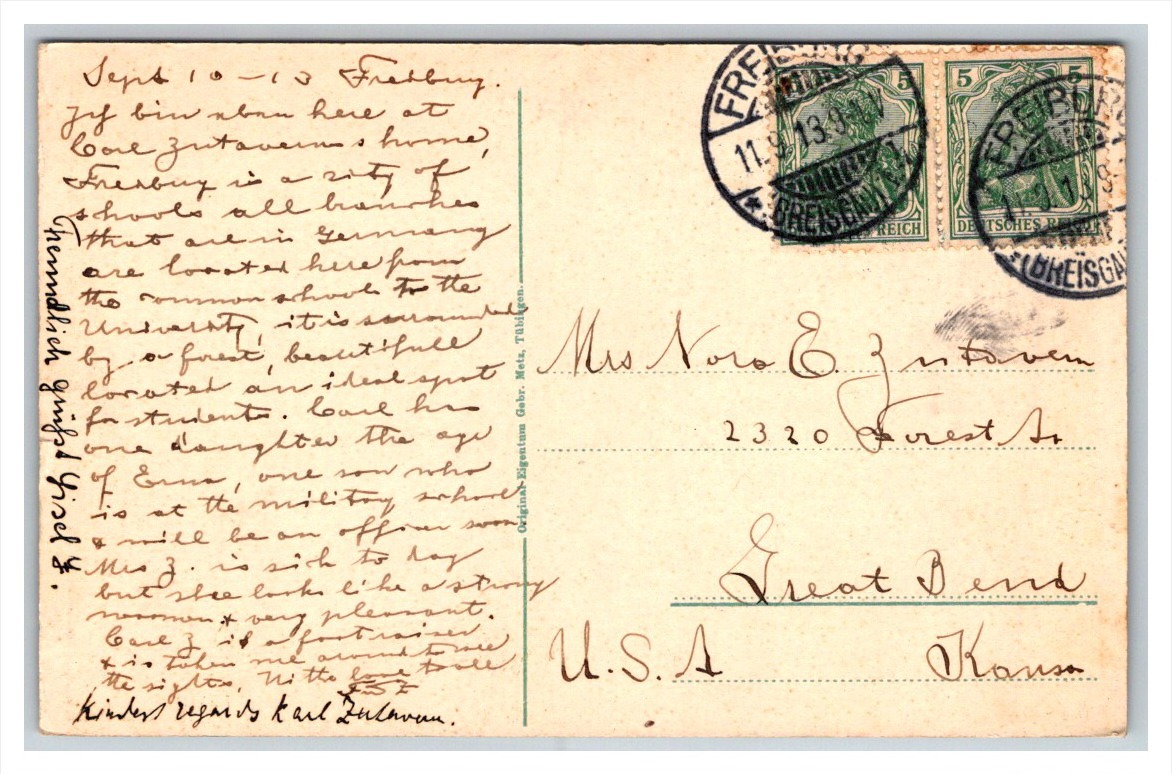 Sept 10 - 13 Freiburg.
Ich bin eben here at
Carl Zutaverns home,
Freiburg is a city of
schools all branches
that are in Germany
are located here from
the common school to the
University, it is surrounded
by a forest, beautifull
located an ideal spot
for students. Carl has
one daughter the age
of Erna, one son who
is at the military school
& will be an officer soon
Mrs Z. is sick to day
but she looks like a strong
woman & very pleasant.
Carl Z is a
& is taken me around to see
the sights. With love to all
F J Z
Kindest regards Karl Zutavern.
Freundlich grüßt
Original-Eigentum Gebr. Metz, Tübingen.
FREIBURG
11.9.13.9-10V
*(BREISGAU)
5
DEUTSCHES REICH
5 5
FREIBURG
11.9.13.9
*(BREISGAU
Mrs Nora E. Zutavern
2320 Forest Av
Great Bend
U.S.A Kansa